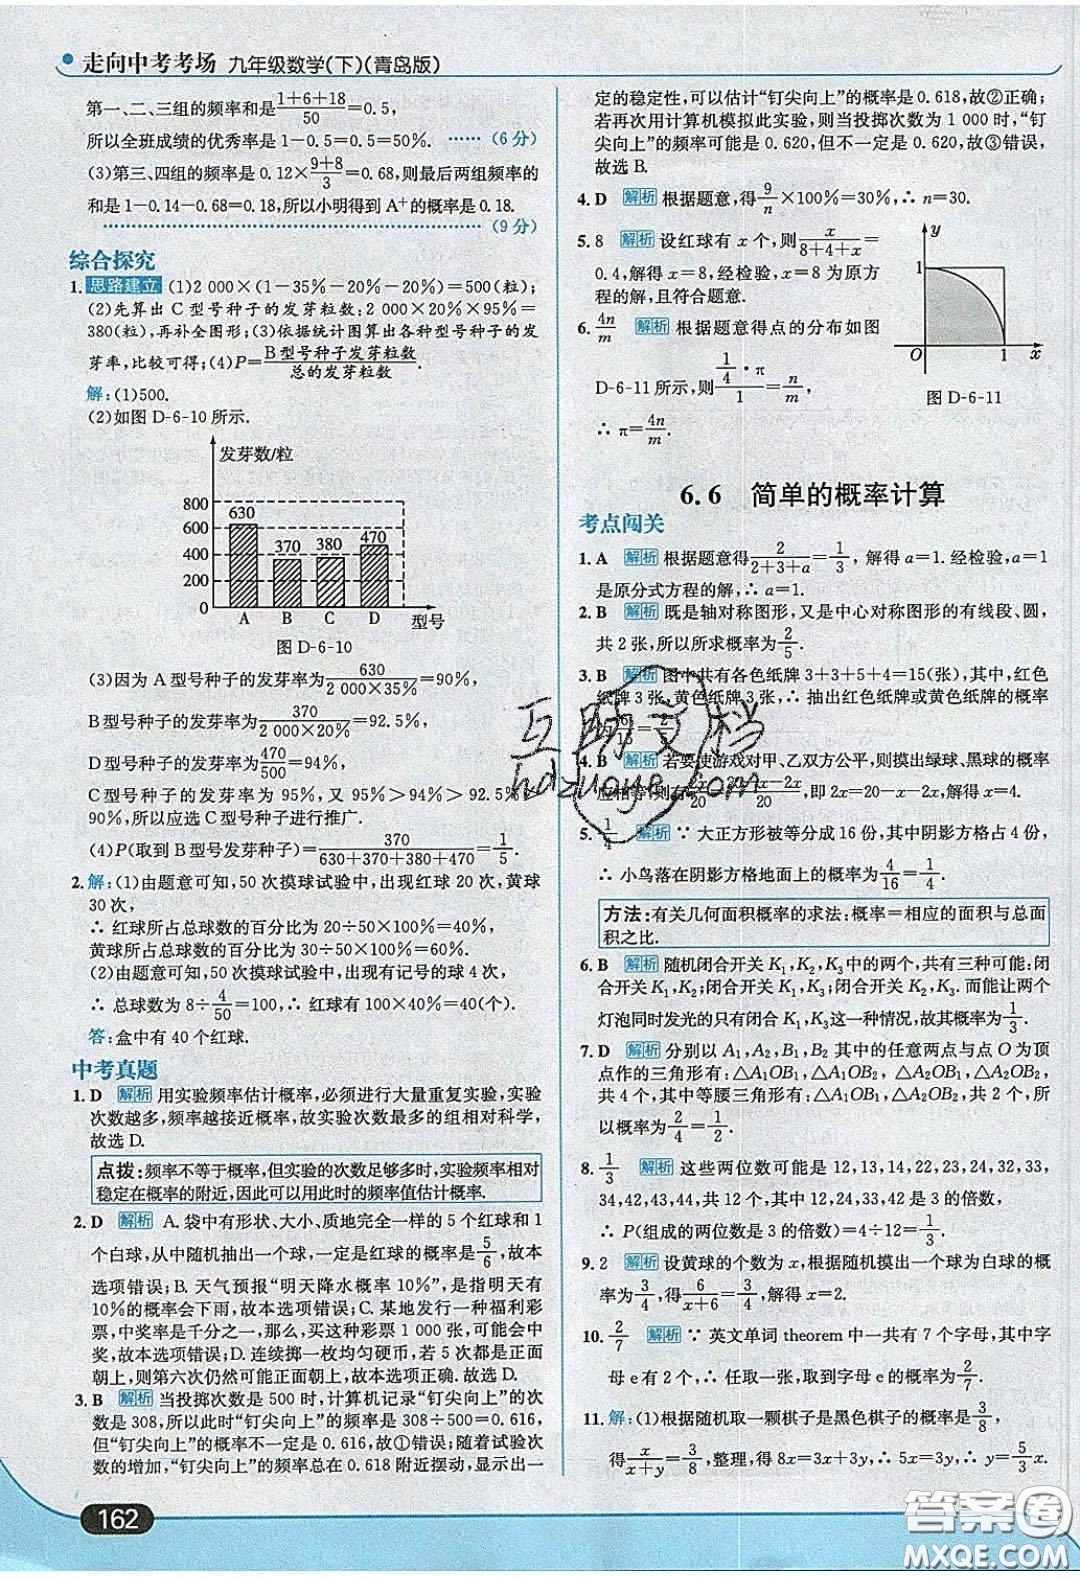 走向中考考场 九年级数学(下)(青岛版)
第一、二、三组的频率和是(1+6+18)/50=0.5,
所以全班成绩的优秀率是 1-0.5=0.5=50%. ……(6 分)
(3)第三、四组的频率是 0.12×(9+8)/3=0.68,则最后两组频率的
和是 1-0.14-0.68=0.18,所以小明得到 A⁺的概率是 0.18.
……(9 分)
综合探究
1. 思路建立 (1)2 000×(1-35%-20%-20%)=500(粒);
(2)先算出 C 型号种子的发芽粒数:2 000×20%×95%=
380(粒),再补全图形;(3)依据统计图算出各种型号种子的发
芽率,比较可得;(4)P=B 型号种子发芽粒数/总的发芽粒数.
解:(1)500.
(2)如图 D-6-10 所示.
发芽数/粒
800
600
400
200
0
630
370
380
470
A B C D 型号
图 D-6-10
(3)因为 A 型号种子的发芽率为630/(2 000×35%)=90%,
B型号种子的发芽率为370/(2 000×20%)=92.5%,
D型号种子的发芽率为470/500=94%,
C型号种子的发芽率为 95%,又 95%>94%>92.5%>
90%,所以应选 C 型号种子进行推广.
(4)P(取到 B 型号发芽种子)=370/(630+370+380+470)=1/5.
2.解:(1)由题意可知,50 次摸球试验中,出现红球 20 次,黄球
30 次,
∴ 红球所占总球数的百分比为 20÷50=40%,
黄球所占总球数的百分比为 30÷50=60%.
(2)由题意可知,50 次摸球试验中,出现有记号的球 4 次,
∴ 总球数为 8÷4/50=100,∴ 红球有 100×40%=40(个).
答:盒中有 40 个红球.
中考真题
1. D 解析 用实验频率估计概率,必须进行大量重复实验,实验
次数越多,频率越接近概率,故实验次数最多的组相对科学,
故选 D.
点拨:频率不等于概率,但实验的次数足够多时,实验频率相对
稳定在概率的附近,因此可以用此时的频率值估计概率.
2. D 解析 A. 袋中有形状、大小、质地完全一样的 5 个红球和 1
个白球,从中随机抽出一个球,一定是红球的概率是5/6,故本
选项错误;B. 天气预报“明天降水概率 10%”,是指明天有
10%的概率会下雨,故本选项错误;C. 某地发行一种福利彩
票,中奖率是千分之一,那么,买这种彩票 1 000 张,可能会中
奖,故本选项错误;D. 连续掷一枚均匀硬币,若 5 次都是正面
朝上,则第六次仍然可能正面朝上,故本选项正确. 故选 D.
3. B 解析 当投掷次数是 500 时,计算机记录“钉尖向上”的次
数是 308,所以此时“钉尖向上”的频率是 308÷500=0.616,
但“钉尖向上”的概率不一定是 0.616,故①错误;随着试验次
数的增加,“钉尖向上”的频率总在 0.618 附近摆动,显示出一
162
定的稳定性,可以估计“钉尖向上”的概率是 0.618,故②正确;
若再次用计算机模拟此实验,则当投掷次数为 1 000 时,“钉
尖向上”的频率可能是 0.620,但不一定是 0.620,故③错误,
故选 B.
4. D 解析 根据题意,得9/n×100%=30%,∴ n=30.
5. 8 解析 设红球有 x 个,则x/(8+4+x)=
0.4,解得 x=8,经检验,x=8 为原方程的
解,且符合题意.
6. 4n/m 解析 根据题意得点的分布如图
D-6-11 所示,则(1/4·π)/1=n/m,
∴ π=4n/m.
y
1
O
1
x
图 D-6-11
6.6 简单的概率计算
考点闯关
1. A 解析 根据题意得2/(2+3+a)=1/3,解得 a=1. 经检验,a=1
是原分式方程的解,∴ a=1.
2. B 解析 既是轴对称图形,又是中心对称图形的有线段、圆,
共 2 张,所以所求概率为2/5.
3. B 解析 图中共有各色纸牌 3+3+5+4=15(张),其中,红色
纸牌 3 张,黄色纸牌 3 张,∴ 抽出红色纸牌或黄色纸牌的概率
4. B 解析 若要使游戏对甲、乙双方公平,则摸出绿球、黑球的概率
应相等,则有2x/20=(20-x-2x)/20,即 2x=20-x-2x,解得 x=4.
5. 1/4 解析 ∵ 大正方形被等分成 16 份,其中阴影方格占 4 份,
∴ 小鸟落在阴影方格地面上的概率为4/16=1/4.
方法:有关几何面积概率的求法:概率=相应的面积与总面
积之比.
6. B 解析 随机闭合开关 K₁,K₂,K₃中的两个,共有三种可能:闭
合开关 K₁,K₂;闭合开关 K₁,K₃;闭合开关 K₂,K₃. 而能让两个
灯泡同时发光的只有闭合 K₁,K₃这一种情况,故概率为1/3.
7. D 解析 分别以 A₁,A₂,B₁,B₂ 中的任意两点与点 O 为顶
点作的三角形有:△A₁OB₁,△A₁OB₂,△A₂OB₁,△A₂OB₂,
共 4 个,其中等腰三角形有:△A₁OB₁,△A₂OB₂,共 2 个,所
以概率为2/4=1/2.
8. 1/3 解析 这些两位数可能是 12,13,14,22,23,24,32,33,
34,42,43,44,共 12 个,其中 12,24,33,42 是 3 的倍数,
∴ P(组成的两位数是 3 的倍数)=4÷12=1/3.
9. 2 解析 设黄球的个数为 x,根据随机摸出一个球为白球的概
率为3/4,得6/(x+6)=3/4,解得 x=2.
10. 2/7 解析 ∵ 英文单词 theorem 中一共有 7 个字母,其中字
母 e 有 2 个,∴ 任取一张,取到字母 e 的概率为2/7.
11. 解:(1)根据随机取一颗棋子是黑色棋子的概率是3/8,
得x/(x+y)=3/8,整理,得 8x=3x+3y,∴ 5x=3y,∴ y=5/3x.
互助文档
hdzuoye.com
答案圈
MXQE.COM